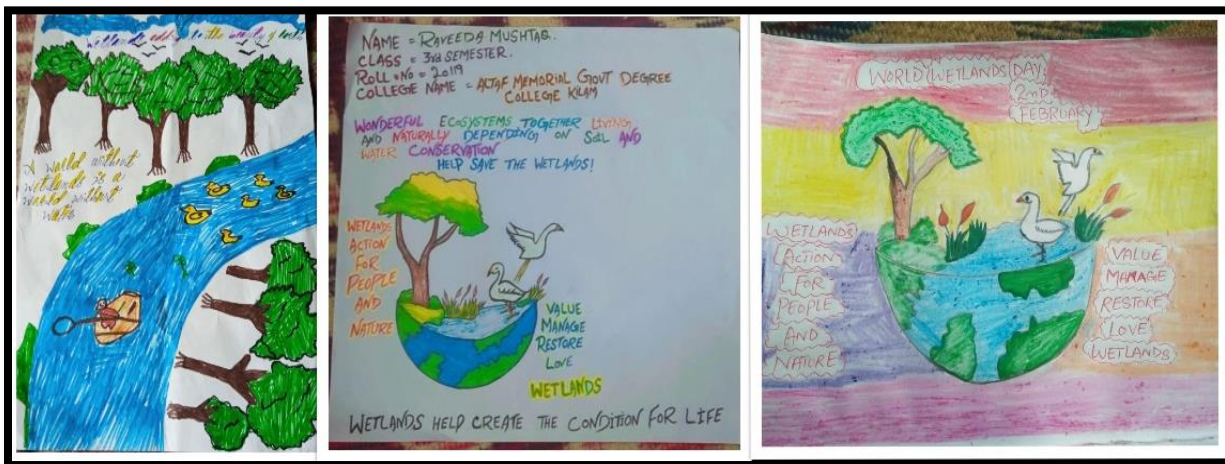 Wetlands add to the beauty of earth
A world without
wetlands is a
world without
water
NAME = RAVEEDA MUSHTAQ.
CLASS = 3rd SEMESTER.
ROLL NO = 20119
COLLEGE NAME = ALTAF MEMORIAL GOVT DEGREE
COLLEGE KILAM
WONDERFUL ECOSYSTEMS TOGETHER LIVING
AND NATURALLY DEPENDING ON SOIL AND
WATER CONSERVATION
HELP SAVE THE WETLANDS!
WETLANDS
ACTION
FOR
PEOPLE
AND
NATURE
VALUE
MANAGE
RESTORE
LOVE
WETLANDS
WETLANDS HELP CREATE THE CONDITION FOR LIFE
WORLD WETLANDS DAY
2ND
FEBRUARY
WETLANDS
ACTION
FOR
PEOPLE
AND
NATURE
VALUE
MANAGE
RESTORE
LOVE
WETLANDS